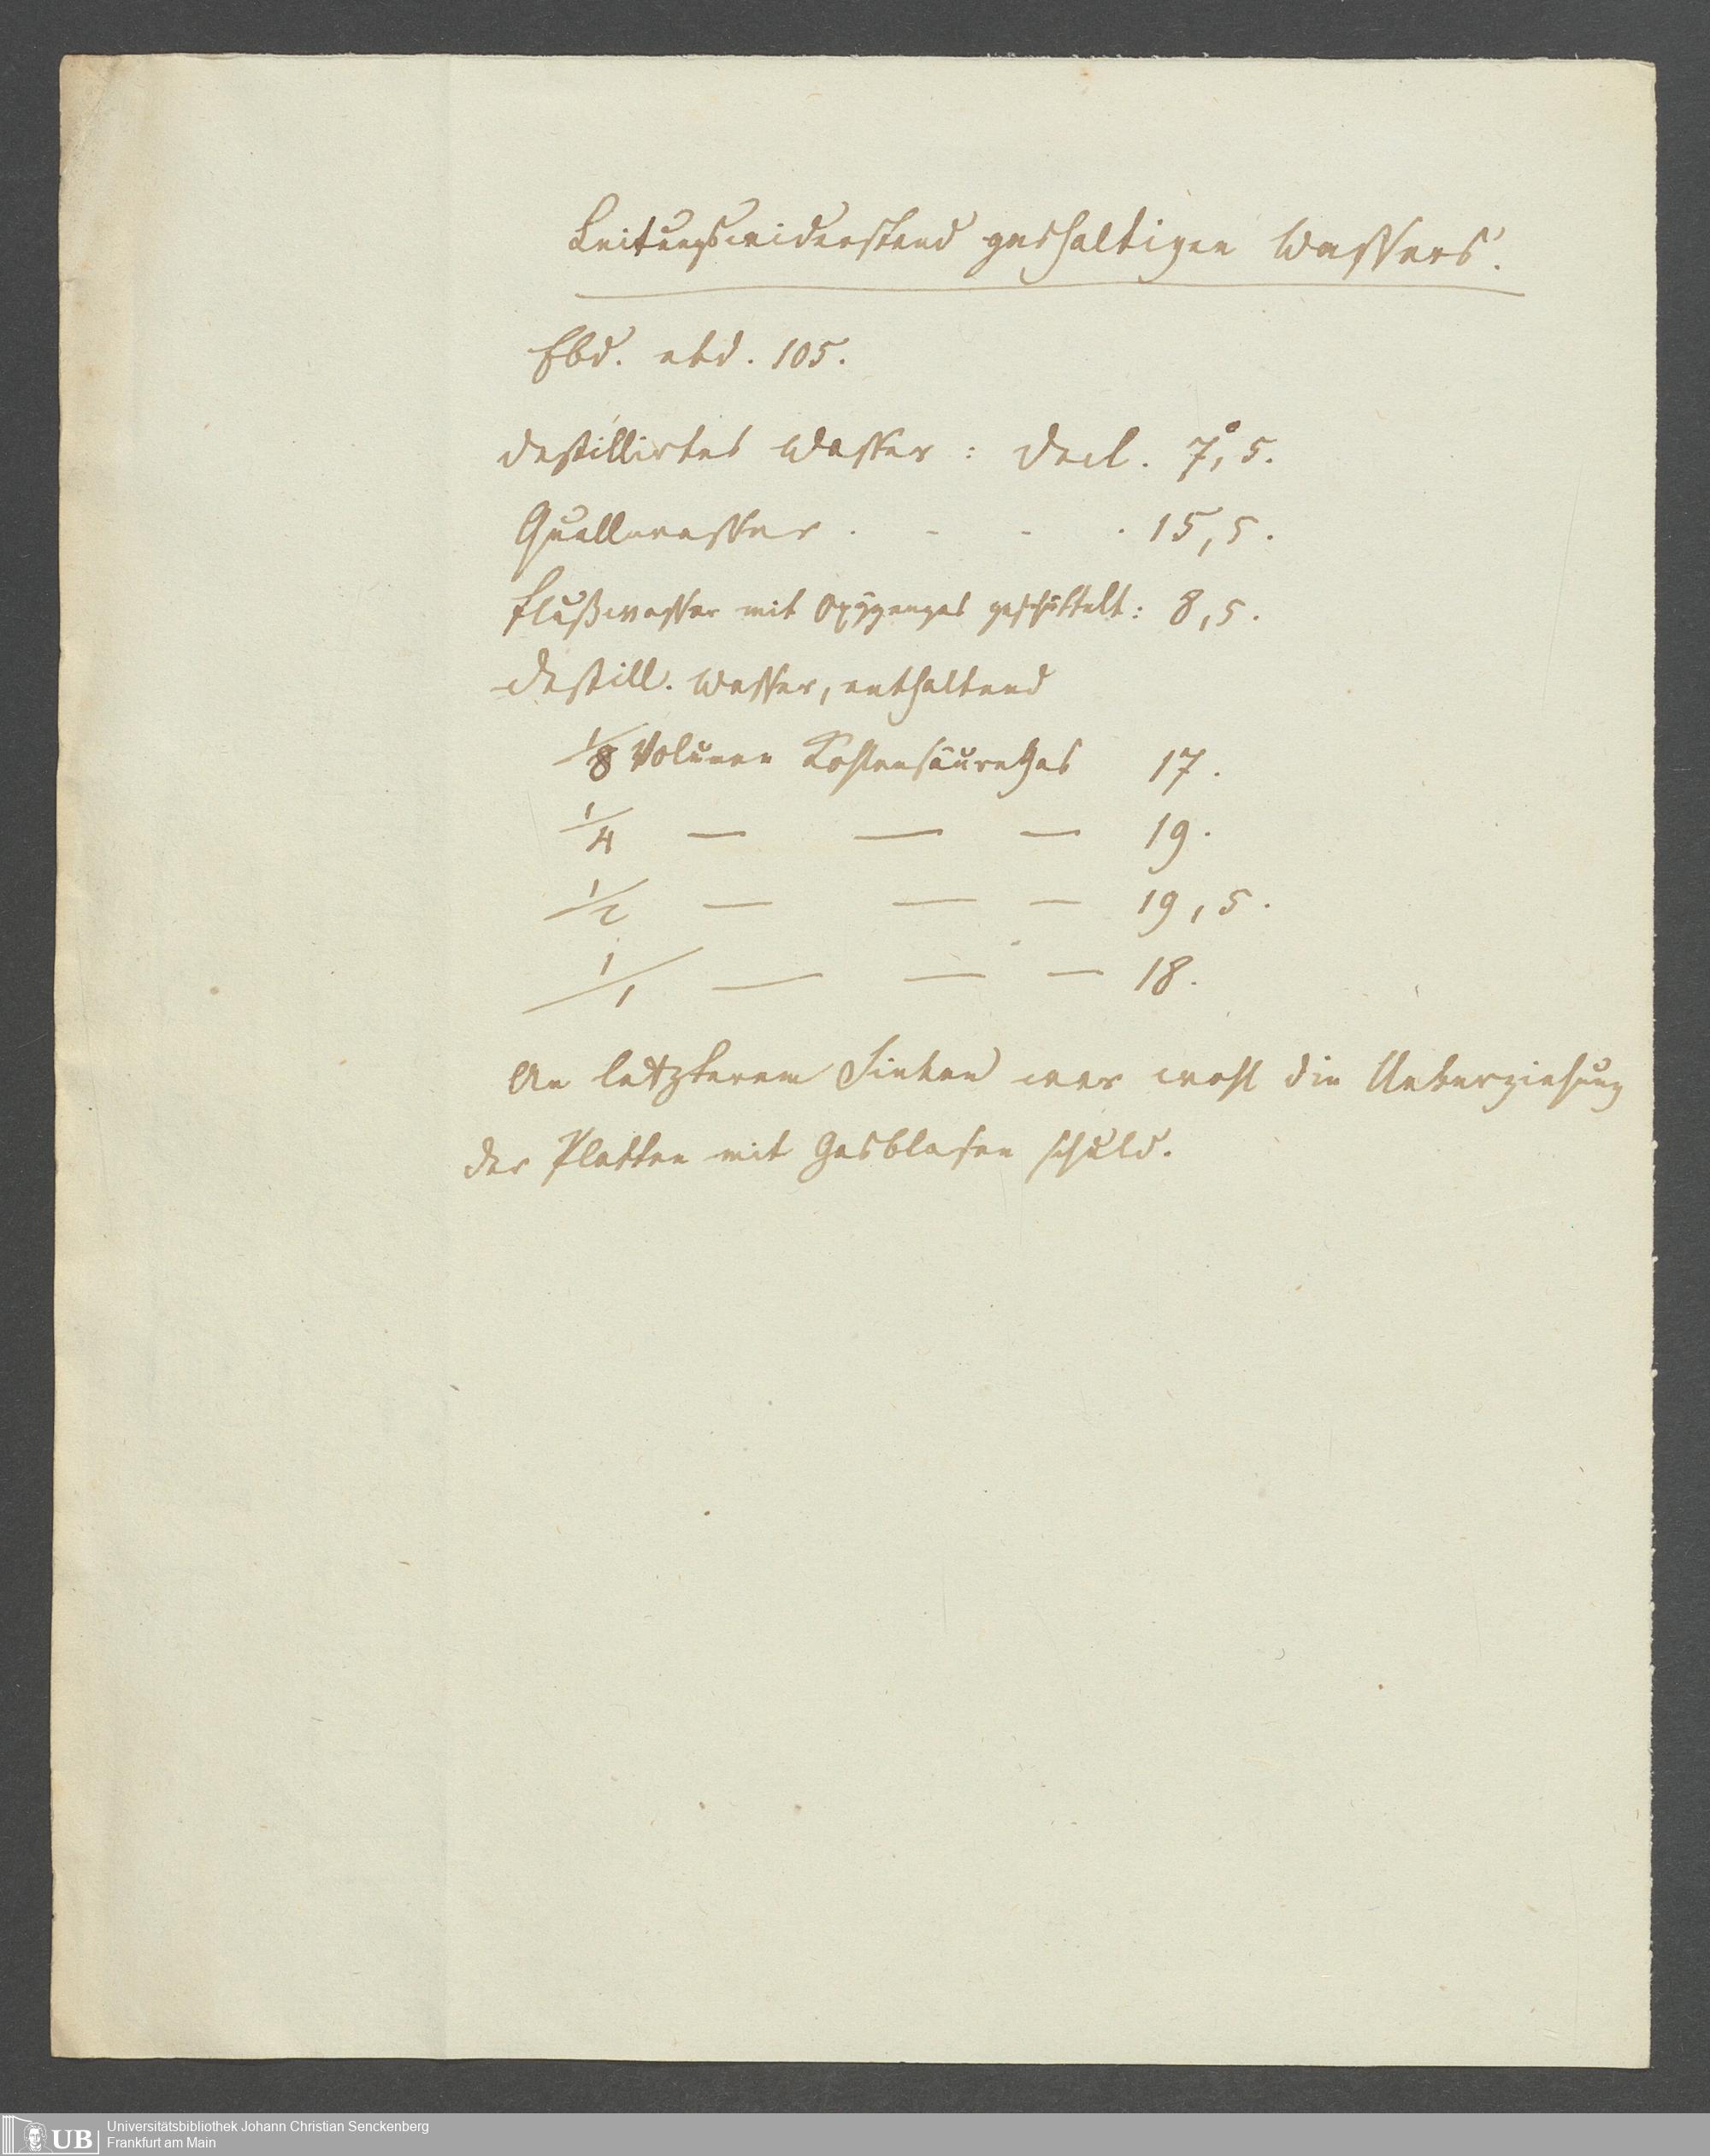 Leitungswiderstand gashaltigen Wassers.
Ebd. ebd. 105.
Destillirtes Wasser : Decl. 7,°5.
Quellwasser . - - . 15,5.
Flußwasser mit Oxygengas geschüttelt: 8,5.
Destill. Wasser, enthaltend
1/8 Volumen KohlensäureGas 17.
1/4 — — — 19.
1/2 — — — 19,5.
1/1 — — — 18.
An letzterem Sinken war wohl die Ueberziehung
der Platten mit Gasblasen schuld.
UB Universitätsbibliothek Johann Christian Senckenberg
Frankfurt am Main